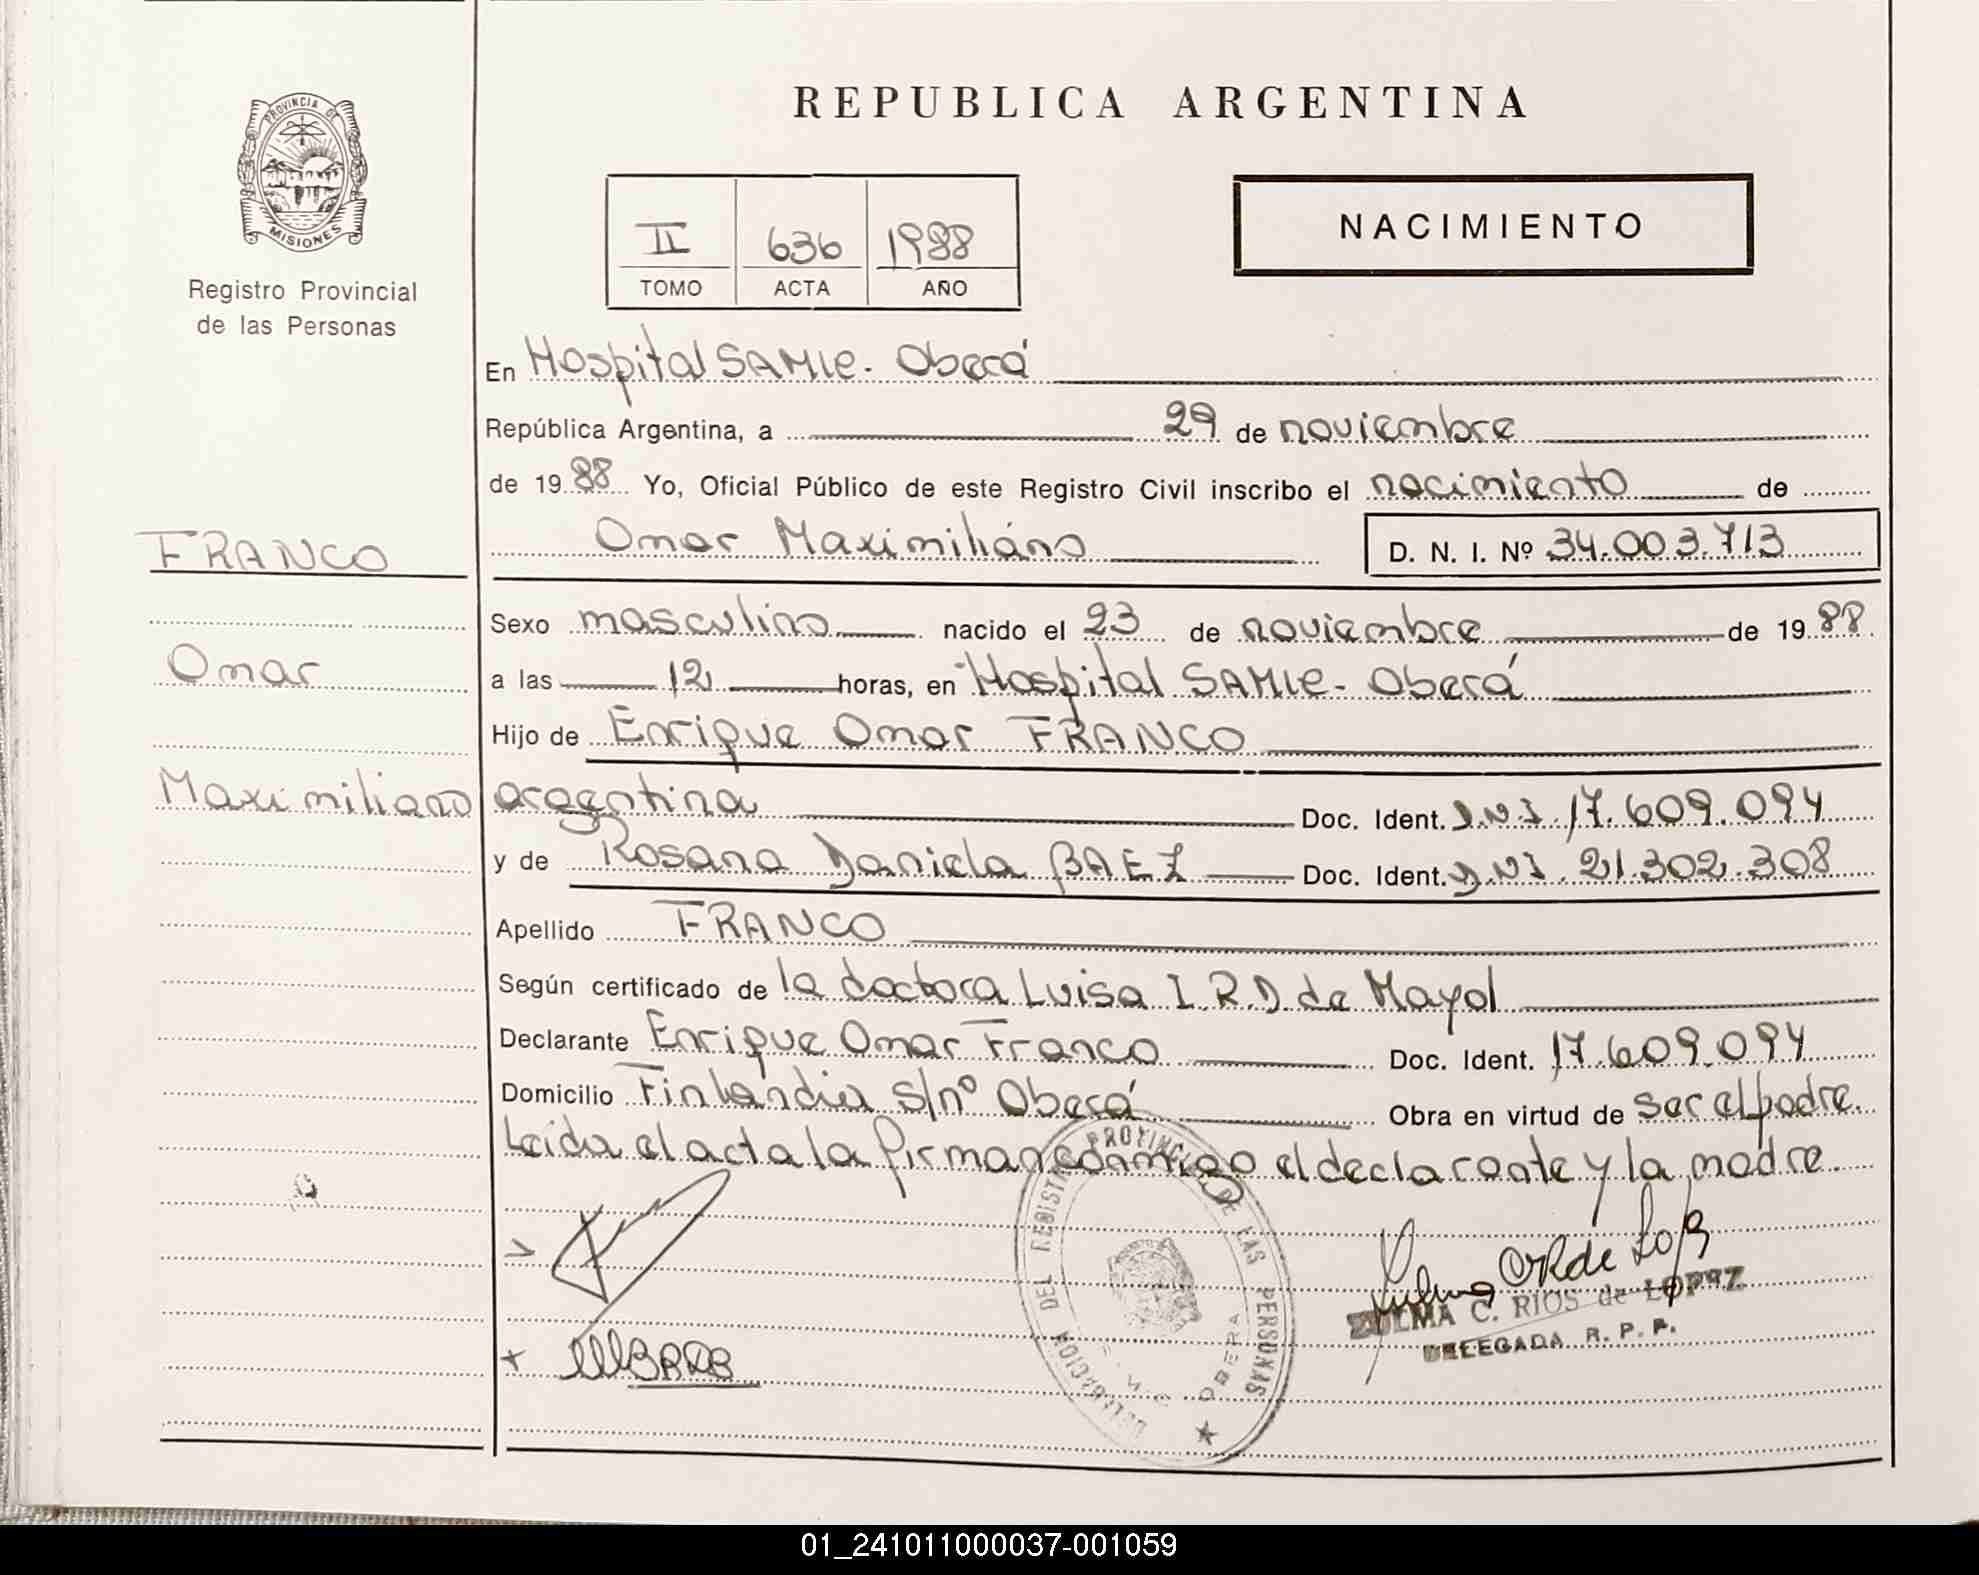 PROVINCIA DE
MISIONES
Registro Provincial
de las Personas
REPUBLICA ARGENTINA
II 636 1988
TOMO ACTA AÑO
NACIMIENTO
En Hospital SAMIC. Oberá
República Argentina, a 29 de noviembre
de 1988 Yo, Oficial Público de este Registro Civil inscribo el nacimiento de
Omar Maximiliáno D. N. I. Nº 34.003.713
FRANCO
Omar
Maximiliano
Sexo masculino nacido el 23 de noviembre de 1988
a las 12 horas, en Hospital SAMIC - Oberá
Hijo de Enrique Omar FRANCO
argentina Doc. Ident. D.N.I. 17.609.094
y de Rosana Daniela BAEZ Doc. Ident. D.N.I. 21.302.308
Apellido FRANCO
Según certificado de la doctora Luisa I.R.D. de Mayol
Declarante Enrique Omar Franco Doc. Ident. 17.609.094
Domicilio Finlandia s/nº Oberá Obra en virtud de ser el padre.
Leída el acta la firman conmigo el declarante y la madre.
DELEGACION DEL REGISTRO PROVINCIAL DE LAS PERSONAS
OBERA
ZULMA C. RIOS de LOPEZ
DELEGADA R. P. P.
01_241011000037-001059